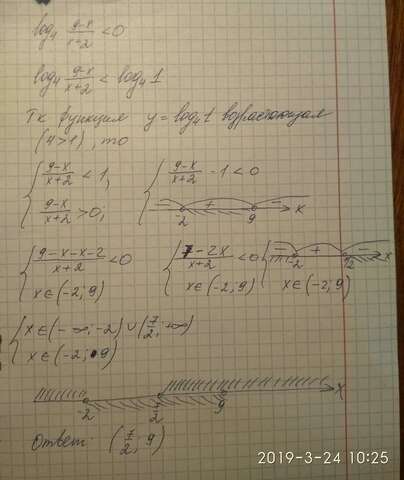 log₄ (9-x)/(x+2) < 0
log₄ (9-x)/(x+2) < log₄ 1
Тк функция y = log₄ 1 возрастающая
(4>1), то
{ (9-x)/(x+2) < 1, { (9-x)/(x+2) - 1 < 0
(9-x)/(x+2) > 0; - + - -2 9 x
{ (9-x-x-2)/(x+2) < 0 { (7-2x)/(x+2) < 0 { - + - -2 7/2 x
x∈(-2; 9) x∈(-2; 9) x∈(-2; 9)
{ x∈(-∞; -2)∪(7/2; +∞)
x∈(-2; 9)
-2 7/2 9 x
Ответ: (7/2; 9)
2019-3-24 10:25